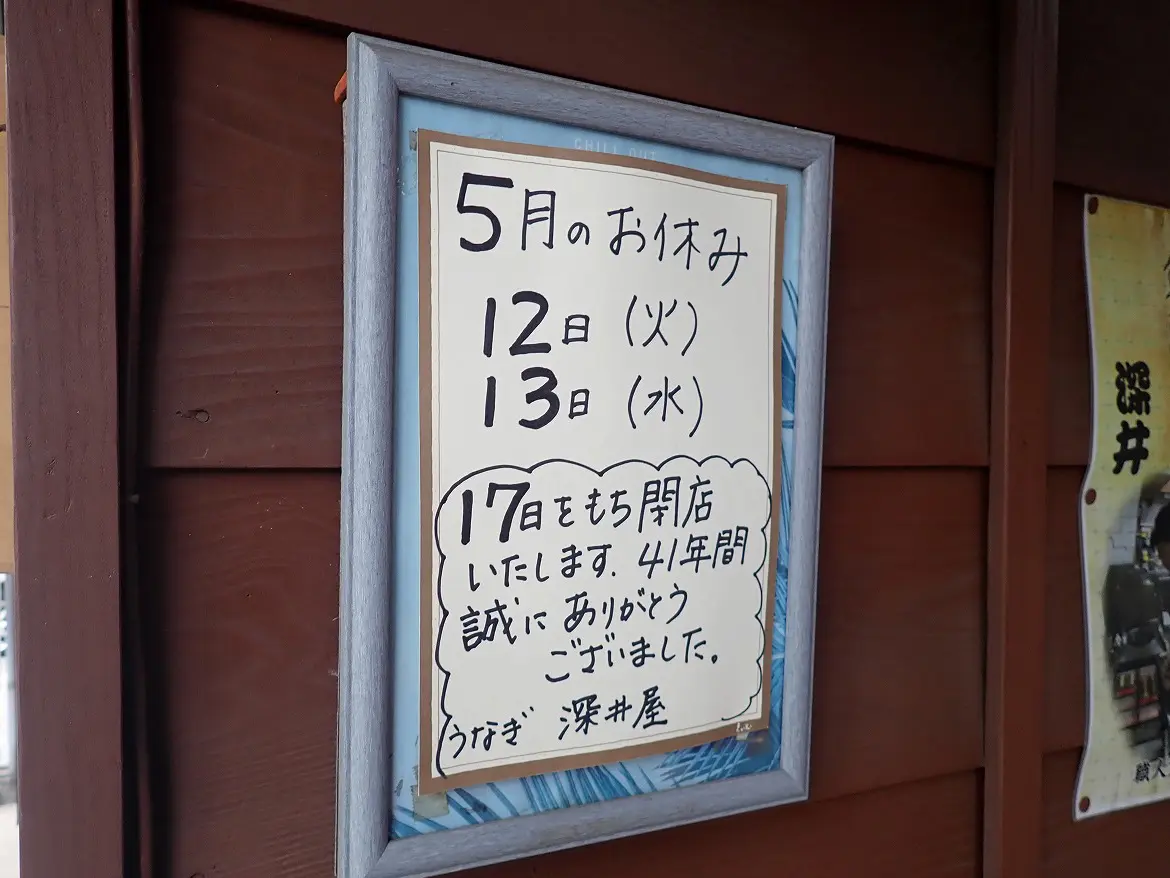 CHILL OUT
5月のお休み
12日 (火)
13日 (水)
17日をもち閉店
いたします. 41年間
誠にありがとう
ございました。
うなぎ 深井屋
深井
職人